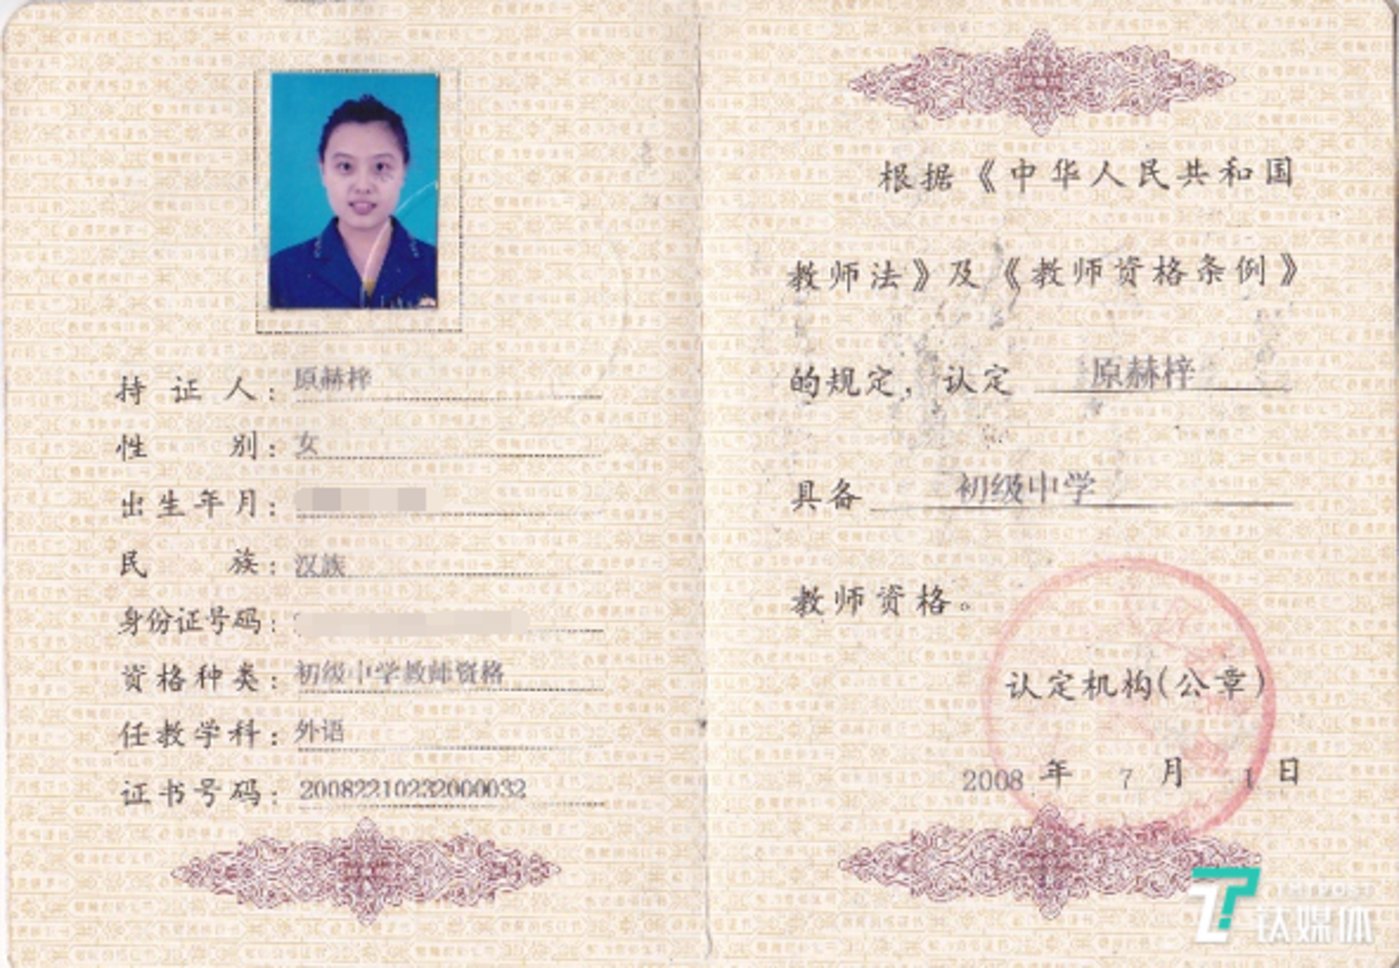 持证人：原赫梓
性别：女
出生年月：
民族：汉族
身份证号码：
资格种类：初级中学教师资格
任教学科：外语
证书号码：20082210232000032
根据《中华人民共和国
教师法》及《教师资格条例》
的规定，认定 原赫梓
具备 初级中学
教师资格。
认定机构(公章)
2008 年 7 月 1 日
TMTPOST
钛媒体